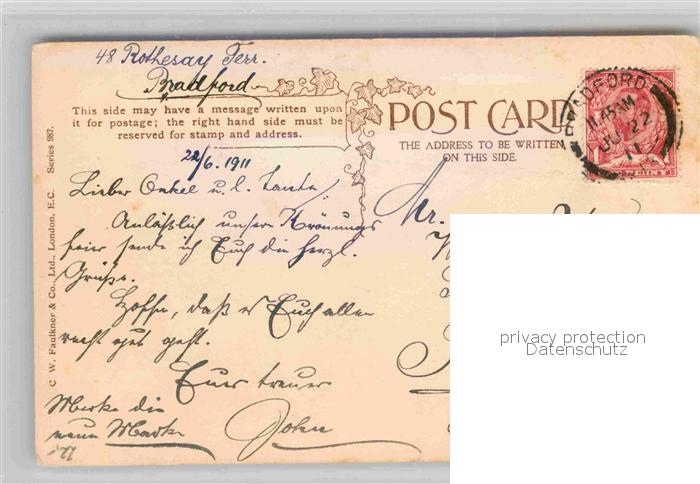 48 Rothesay Terr.
Bradford
This side may have a message written upon
it for postage; the right hand side must be
reserved for stamp and address.
POST CARD
THE ADDRESS TO BE WRITTEN
ON THIS SIDE.
BRADFORD
11.45 AM
JU 22
11
PENNY
22/6. 1911
Lieber Onkel u. l. Tante!
Anläßlich unserer Krönungs
feier sende ich Euch die herzl.
Grüße.
Hoffe, daß es Euch allen
recht gut geht.
Euer treuer
John
Merke die
neue Marke
Mr.
C. W. Faulkner & Co., Ltd., London, E.C. Series 987.
privacy protection
Datenschutz